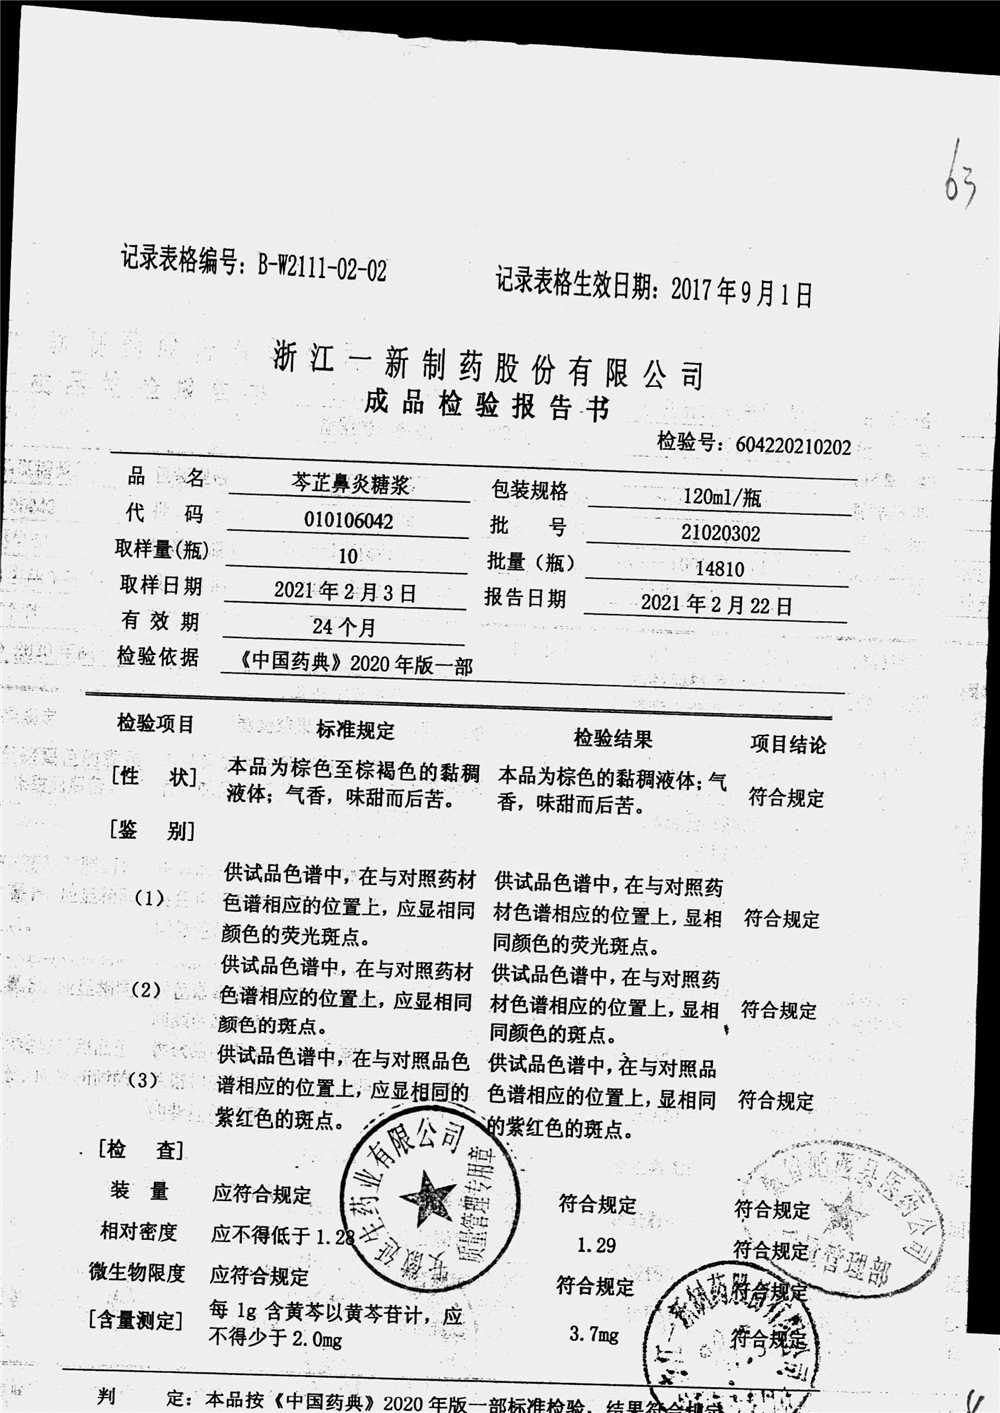 63
记录表格编号：B-W2111-02-02 记录表格生效日期：2017年9月1日
浙江一新制药股份有限公司
成品检验报告书
检验号：604220210202
品 名 芩芷鼻炎糖浆 包装规格 120ml/瓶
代 码 010106042 批 号 21020302
取样量(瓶) 10 批量（瓶） 14810
取样日期 2021年2月3日 报告日期 2021年2月22日
有效期 24个月
检验依据 《中国药典》2020年版一部
检验项目 标准规定 检验结果 项目结论
[性 状] 本品为棕色至棕褐色的黏稠 本品为棕色的黏稠液体；气
液体；气香，味甜而后苦。 香，味甜而后苦。 符合规定
[鉴 别]
供试品色谱中，在与对照药材 供试品色谱中，在与对照药
（1） 色谱相应的位置上，应显相同 材色谱相应的位置上，显相 符合规定
颜色的荧光斑点。 同颜色的荧光斑点。
供试品色谱中，在与对照药材 供试品色谱中，在与对照药
（2） 色谱相应的位置上，应显相同 材色谱相应的位置上，显相 符合规定
颜色的斑点。 同颜色的斑点。
供试品色谱中，在与对照品色 供试品色谱中，在与对照品
（3） 谱相应的位置上，应显相同的 色谱相应的位置上，显相同 符合规定
紫红色的斑点。 的紫红色的斑点。
[检 查]
装 量 应符合规定 符合规定 符合规定
相对密度 应不得低于1.28 1.29 符合规定
微生物限度 应符合规定 符合规定 符合规定
[含量测定] 每1g含黄芩以黄芩苷计，应
不得少于2.0mg 3.7mg 符合规定
判 定：本品按《中国药典》2020年版一部标准检验，结果符合规定
安徽延生药业有限公司
质量管理专用章
县医药公司
管理部
江一新制药股份有限公司